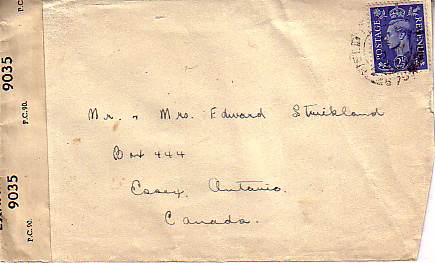 9035
P.C.90.
9035
P.C.90.
POSTAGE
REVENUE
Mr. & Mrs. Edward Strickland
Box 444
Essex, Ontario.
Canada.